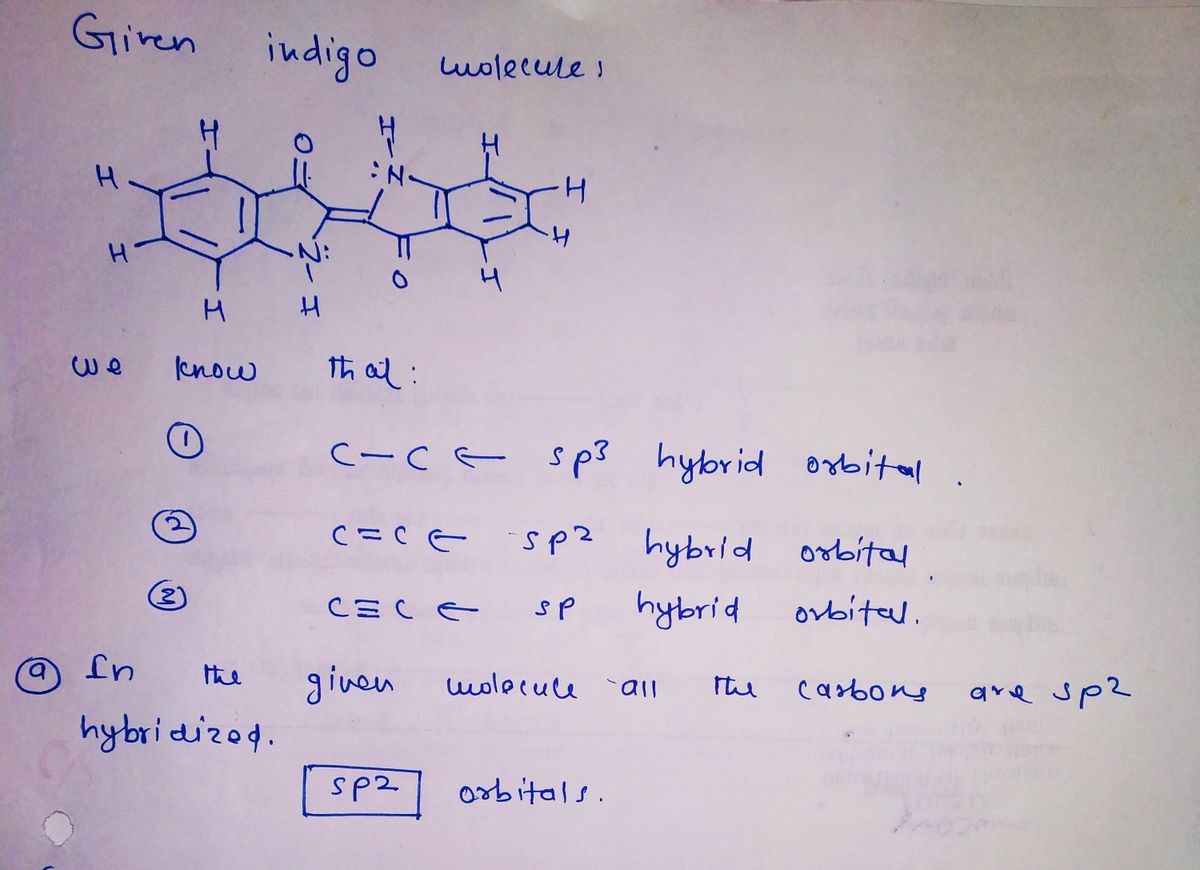 Given indigo molecule:
H H H
H O :N H
H N: O H
H H H
we know that:
① C-C ← sp3 hybrid orbital.
② C=C ← sp2 hybrid orbital
③ C≡C ← sp hybrid orbital.
ⓐ In the given molecule all the carbons are sp2
hybridized.
sp2 orbitals.